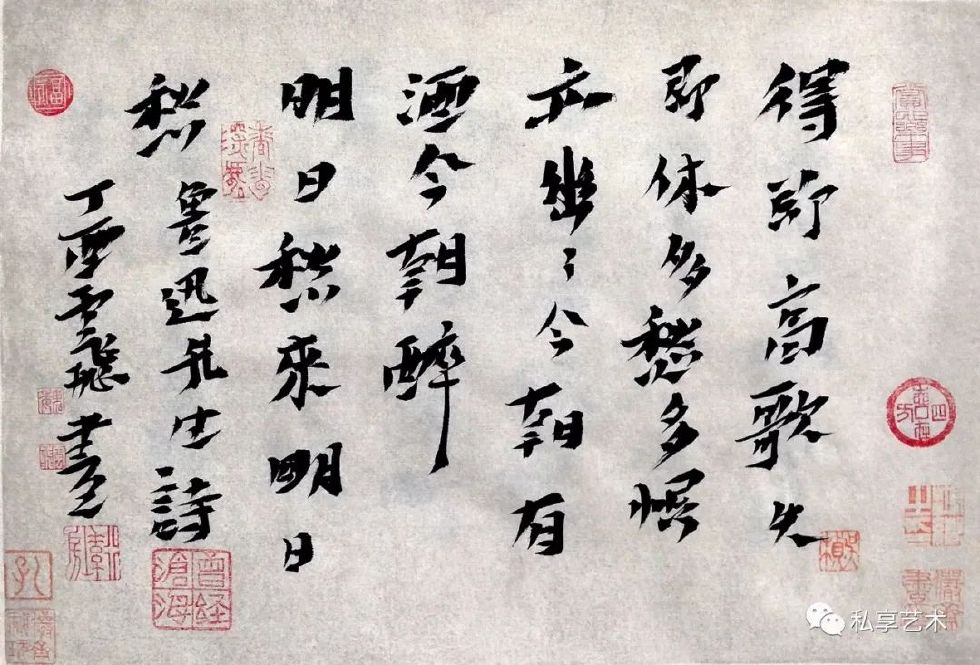 得即高歌失
即休多愁多恨
亦悠〻今朝有
酒今朝醉
明日愁來明日
愁魯迅先生詩
丁酉雲飛書
曾经滄海
私享艺术